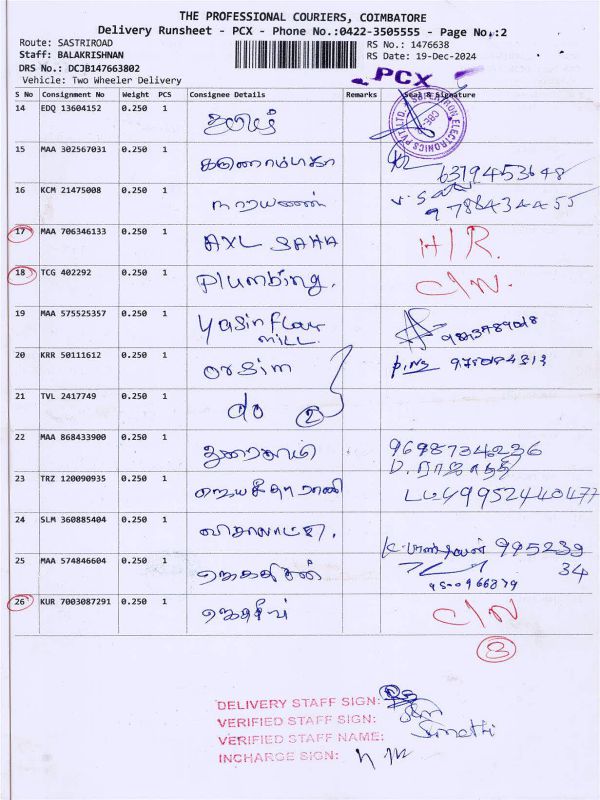 THE PROFESSIONAL COURIERS, COIMBATORE
Delivery Runsheet - PCX - Phone No.:0422-3505555 - Page No.:2
Route: SASTRIROAD
RS No.: 1476638
Staff: BALAKRISHNAN
RS Date: 19-Dec-2024
DRS No.: DCJB147663802
Vehicle: Two Wheeler Delivery
PCX
S No Consignment No Weight PCS Consignee Details Remarks Seal & Signature
14 EDQ 13604152 0.250 1
15 MAA 302567031 0.250 1 6379453648
16 KCM 21475008 0.250 1 நாராயணன்
9788434455
17 MAA 706346133 0.250 1 AXL SAHA H/R.
18 TCG 402292 0.250 1 Plumbing. C/N.
19 MAA 575525357 0.250 1 Yasin flour
MILL.
20 KRR 50111612 0.250 1 orsim
21 TVL 2417749 0.250 1 do 2
22 MAA 868433900 0.250 1 துரைசாமி 9698734236
23 TRZ 120090935 0.250 1 9952440477
24 SLM 360885404 0.250 1 விசாலாட்சி.
995239
25 MAA 574846604 0.250 1 ஜெகதீசன் 34
9500966879
26 KUR 7003087291 0.250 1 C/N
3
DELIVERY STAFF SIGN:
VERIFIED STAFF SIGN:
VERIFIED STAFF NAME: Sumathi
INCHARGE SIGN: